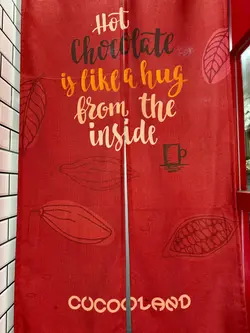 Hot
Chocolate
is like a hug
from the
inside
CUCOOLAND